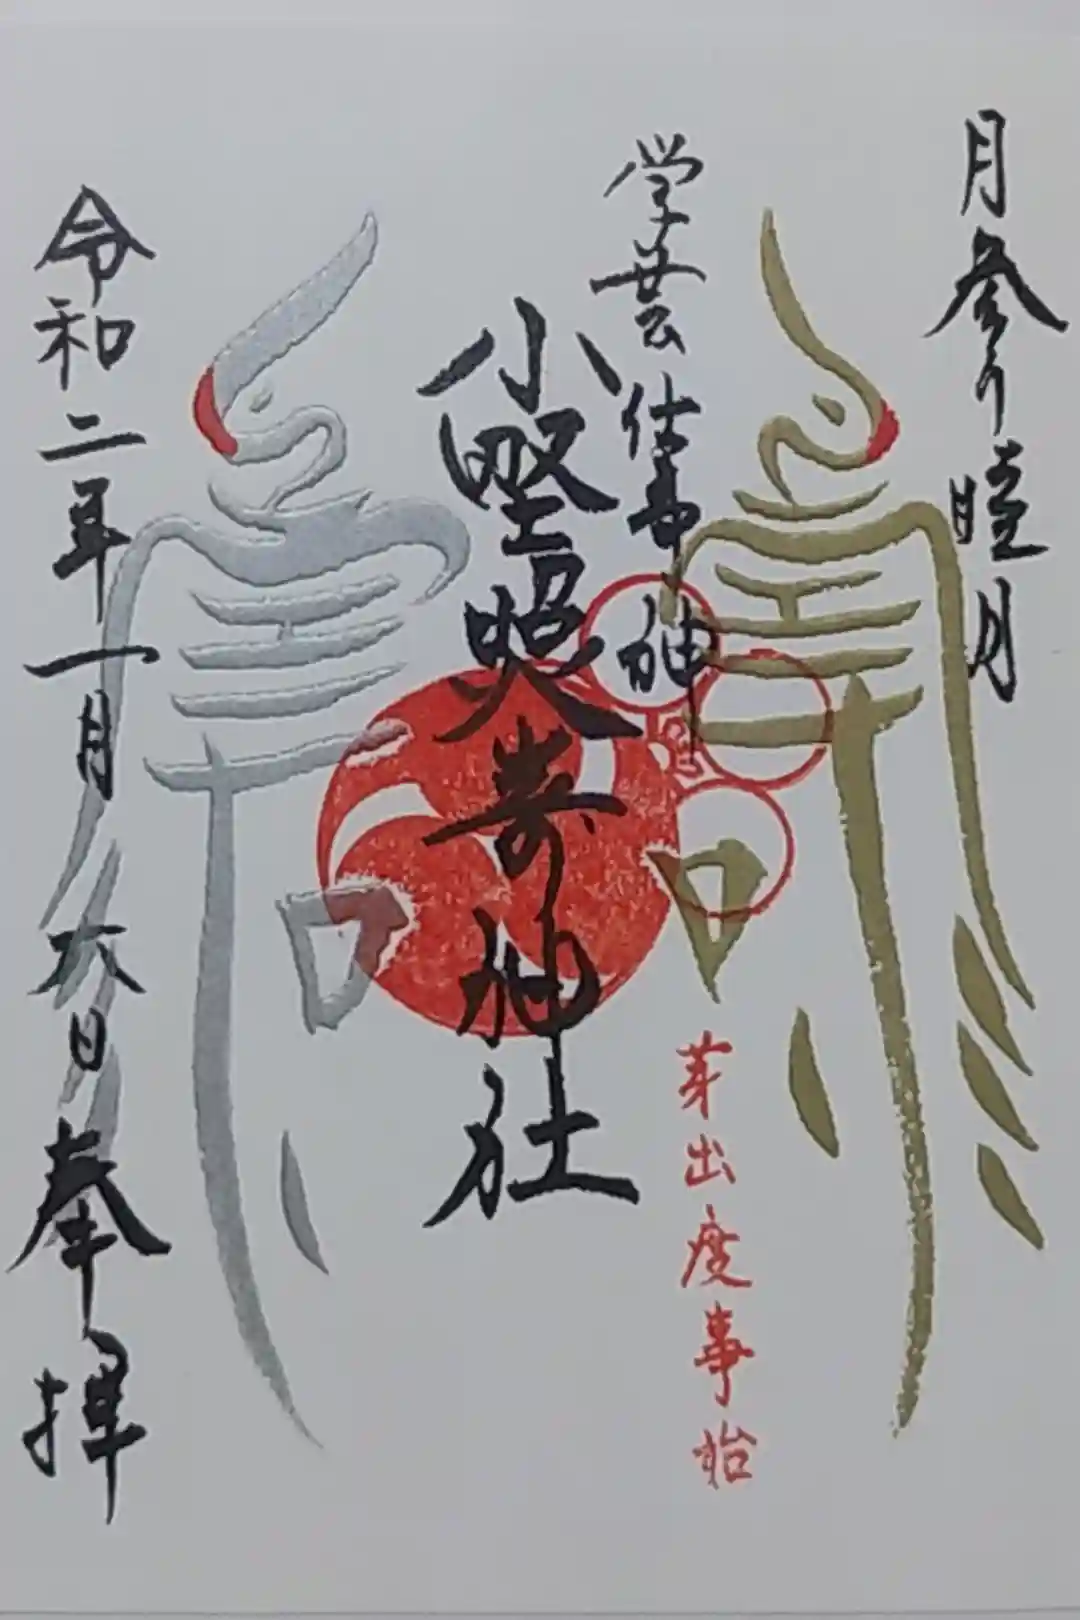 月参り 睦月
壽
学芸 仕事神
芽出度事始
小野照嵜神社
壽
令和二年一月六日 奉拝